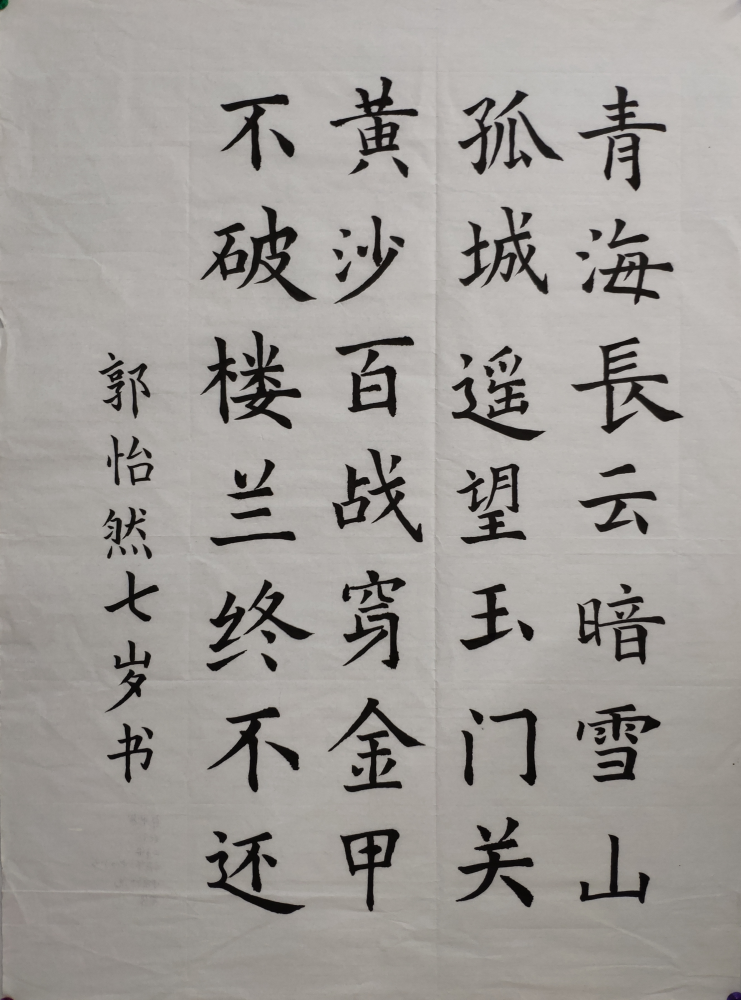 青海長云暗雪山
孤城遥望玉门关
黄沙百战穿金甲
不破楼兰终不还
郭怡然七岁书